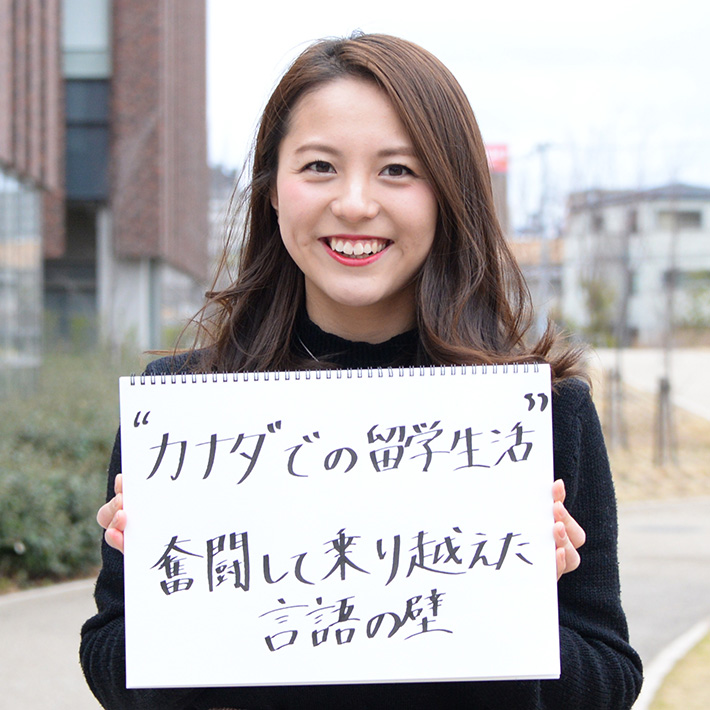 “カナダでの留学生活”
奮闘して乗り越えた
言語の壁